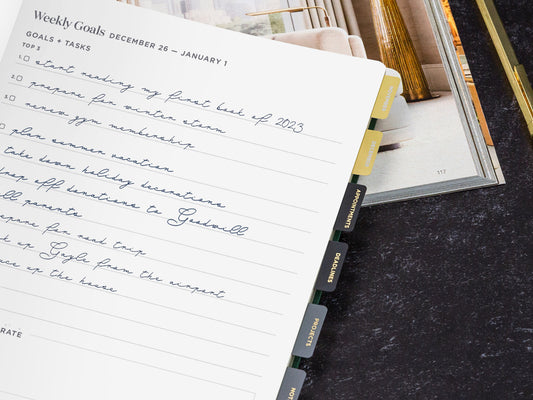 Weekly Goals DECEMBER 26 — JANUARY 1
GOALS + TASKS
TOP 3
1. start reading my first book of 2023
2. prepare for winter storm
3. renew gym membership
plan summer vacation
take down holiday decorations
off donations to Goodwill
parents
for road trip
up Gayle from the airport
up the house
RATE
APPOINTMENTS
DEADLINES
PROJECTS
NOT
117